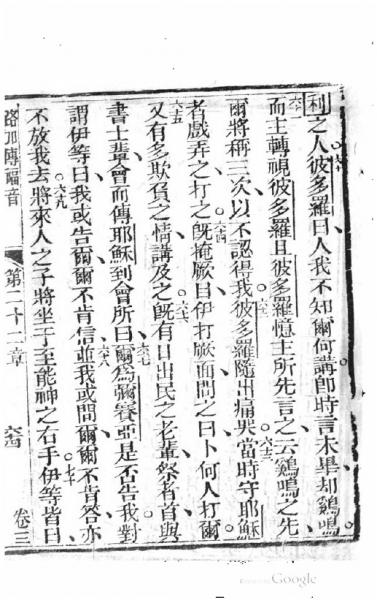 利之人彼多羅曰人我不知爾何講卽時言未畢却鷄鳴
而主轉視彼多羅且彼多羅憶主所先言之云鷄鳴之先
爾將稱三次以不認得我彼多羅隨出痛哭當時守耶穌
者戲弄之打之旣掩厥目伊打厥面問之曰卜何人打爾
又有多欺負之情講及之旣有日出民之老輩祭者首與
書士輩會而傳耶穌到會所曰爾為彌賽亞是否告我對
謂伊等曰我或告爾爾不肯信並我或問爾爾不肯答亦
不放我去將來人之子將坐于至能神之右手伊等皆曰
路加傳福音
第二十二章
卷三
六十
六一
六二
六三
六四
六五
六六
六七
六八
六九
七十
Google